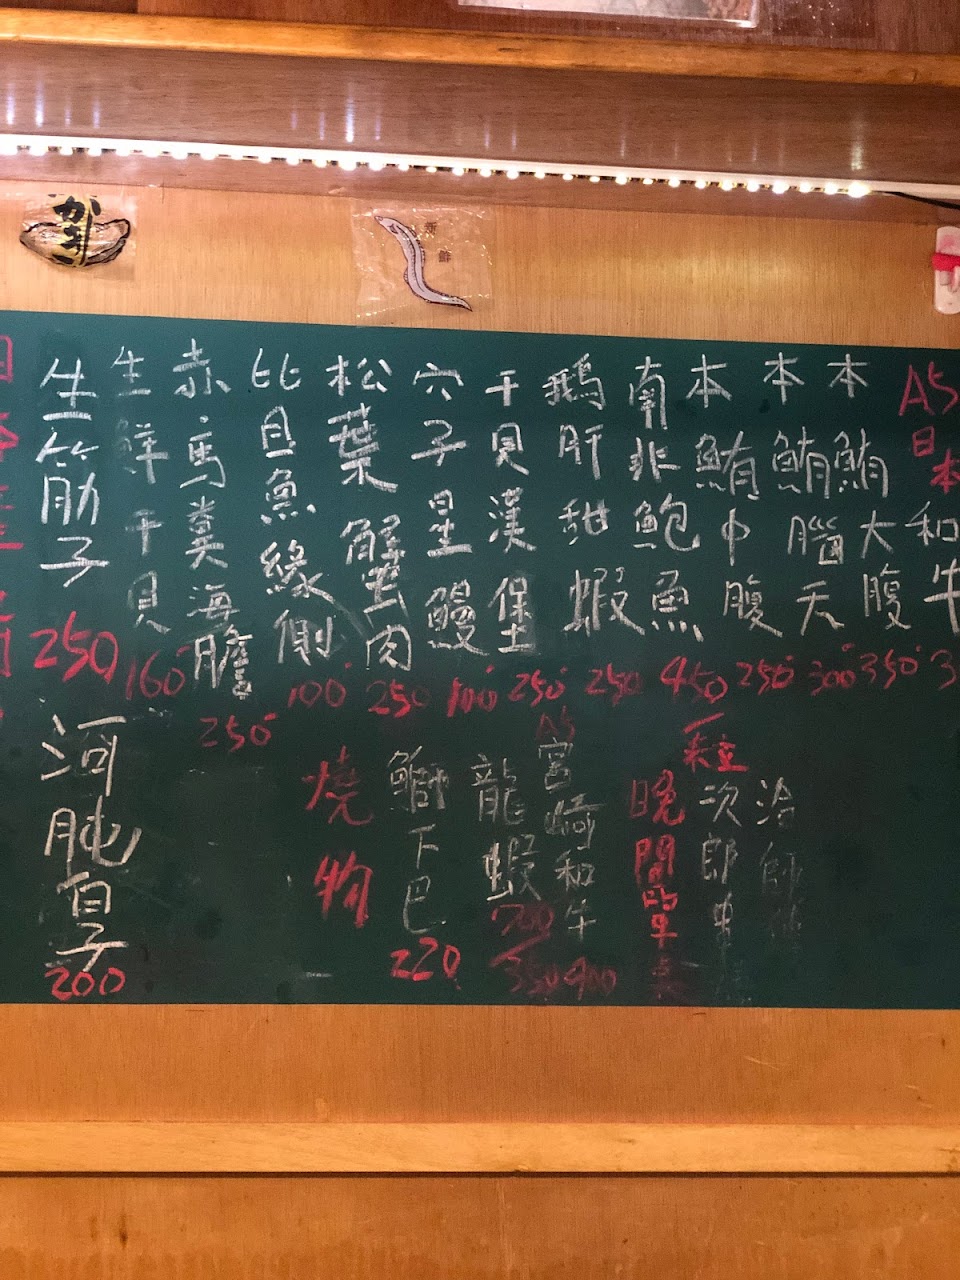 A5日本和牛
本鮪大腹 350
本鮪腦天 300
本鮪中腹 250
南非鮑魚 450
鵝肝甜蝦 250
干貝漢堡 250
穴子星鰻 100
松葉蟹肉 250
比目魚緣側 100
赤馬糞海膽 250
生鮮干貝 160
生筋子 250
晚間單点
A5宮崎和牛 900
龍蝦 700 350
鰤下巴 220
燒物
河肫白子 200
がき